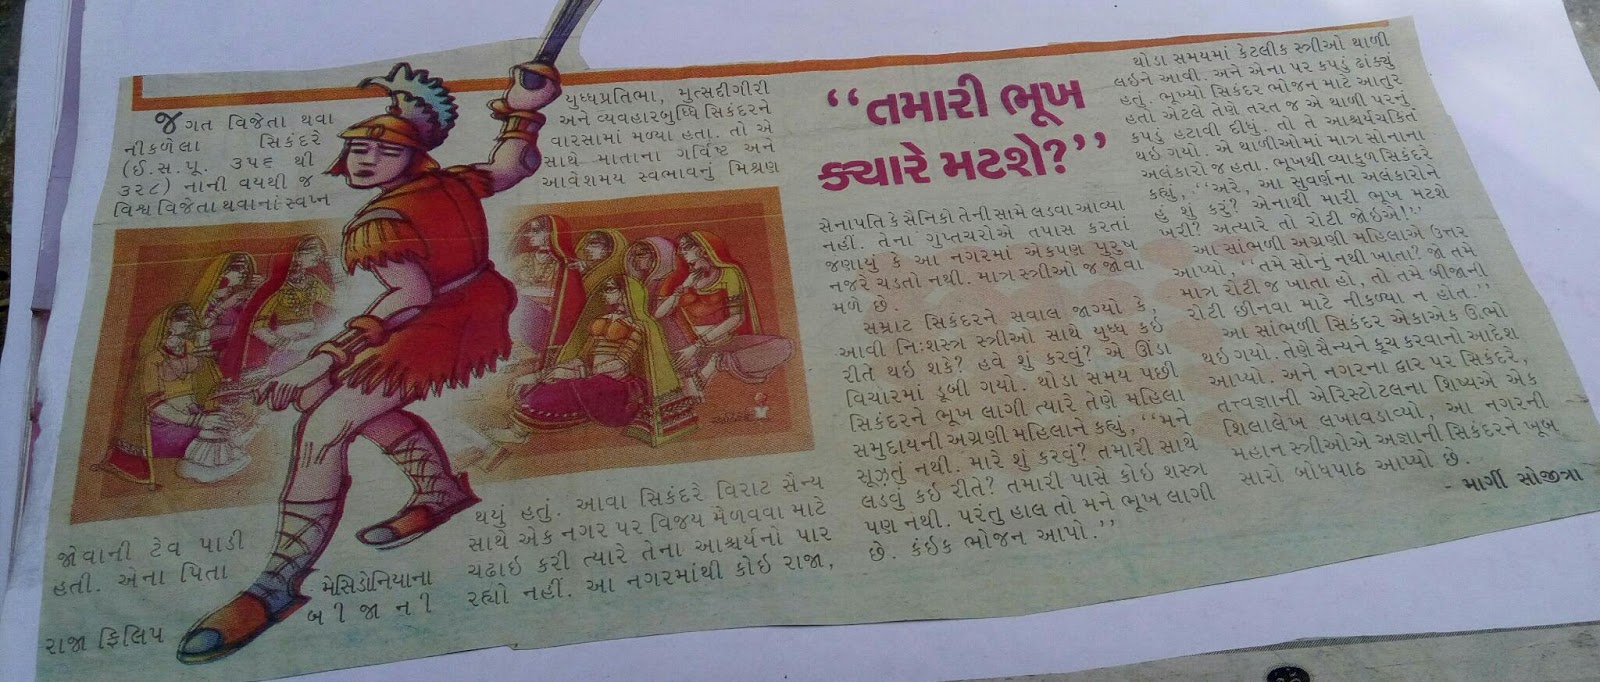 “તમારી ભૂખ
ક્યારે મટશે?”
જગત વિજેતા થવા
નીકળેલા સિકંદરે
(ઈ.સ.પૂ. ૩૫૬ થી
૩૨૮) નાની વયથી જ
વિશ્વ વિજેતા થવાનાં સ્વપ્ન
જોવાની ટેવ પાડી
હતી. એના પિતા
મેસિડોનિયાના
રાજા ફિલિપ
બીજાની
યુધ્ધપ્રતિભા, મુત્સદીગીરી
અને વ્યવહારબુધ્ધિ સિકંદરને
વારસામાં મળ્યા હતા. તો એ
સાથે માતાના ગર્વિષ્ટ અને
આવેશમય સ્વભાવનું મિશ્રણ
થયું હતું. આવા સિકંદરે વિરાટ સૈન્ય
સાથે એક નગર પર વિજય મેળવવા માટે
ચઢાઇ કરી ત્યારે તેના આશ્ચર્યનો પાર
રહ્યો નહીં. આ નગરમાંથી કોઇ રાજા,
સેનાપતિ કે સૈનિકો તેની સામે લડવા આવ્યા
નહીં. તેના ગુપ્તચરોએ તપાસ કરતાં
જણાયું કે આ નગરમાં એકપણ પુરુષ
નજરે ચડતો નથી. માત્ર સ્ત્રીઓ જ જોવા
મળે છે.
સમ્રાટ સિકંદરને સવાલ જાગ્યો કે,
આવી નિઃશસ્ત્ર સ્ત્રીઓ સાથે યુધ્ધ કઇ
રીતે થઇ શકે? હવે શું કરવું? એ ઊંડા
વિચારમાં ડૂબી ગયો. થોડા સમય પછી
સિકંદરને ભૂખ લાગી ત્યારે તેણે મહિલા
સમુદાયની અગ્રણી મહિલાને કહ્યું, “મને
સૂઝતું નથી. મારે શું કરવું? તમારી સાથે
લડવું કઇ રીતે? તમારી પાસે કોઇ શસ્ત્ર
પણ નથી. પરંતુ હાલ તો મને ભૂખ લાગી
છે. કંઇક ભોજન આપો.”
થોડા સમયમાં કેટલીક સ્ત્રીઓ થાળી
લઇને આવી. અને એના પર કપડું ઢાંક્યું
હતું. ભૂખ્યો સિકંદર ભોજન માટે આતુર
હતો એટલે તેણે તરત જ એ થાળી પરનું
કપડું હટાવી દીધું. તો તે આશ્ચર્યચકિત
થઇ ગયો. એ થાળીઓમાં માત્ર સોનાના
અલંકારો જ હતા. ભૂખથી વ્યાકુળ સિકંદરે
કહ્યું, “અરે, આ સુવર્ણના અલંકારોને
હું શું કરું? એનાથી મારી ભૂખ મટશે
ખરી? અત્યારે તો રોટી જોઇએ!”
આ સાંભળી અગ્રણી મહિલાએ ઉત્તર
આપ્યો, “તમે સોનું નથી ખાતા? જો તમે
માત્ર રોટી જ ખાતા હો, તો તમે બીજાની
રોટી છીનવા માટે નીકળ્યા ન હોત.”
આ સાંભળી સિકંદર એકાએક ઉભો
થઇ ગયો. તેણે સૈન્યને કૂચ કરવાનો આદેશ
આપ્યો. અને નગરના દ્વાર પર સિકંદરે,
તત્ત્વજ્ઞાની એરિસ્ટોટલના શિષ્યએ એક
શિલાલેખ લખાવડાવ્યો, આ નગરની
મહાન સ્ત્રીઓએ અજ્ઞાની સિકંદરને ખૂબ
સારો બોધપાઠ આપ્યો છે.
- માર્ગી સોજીત્રા